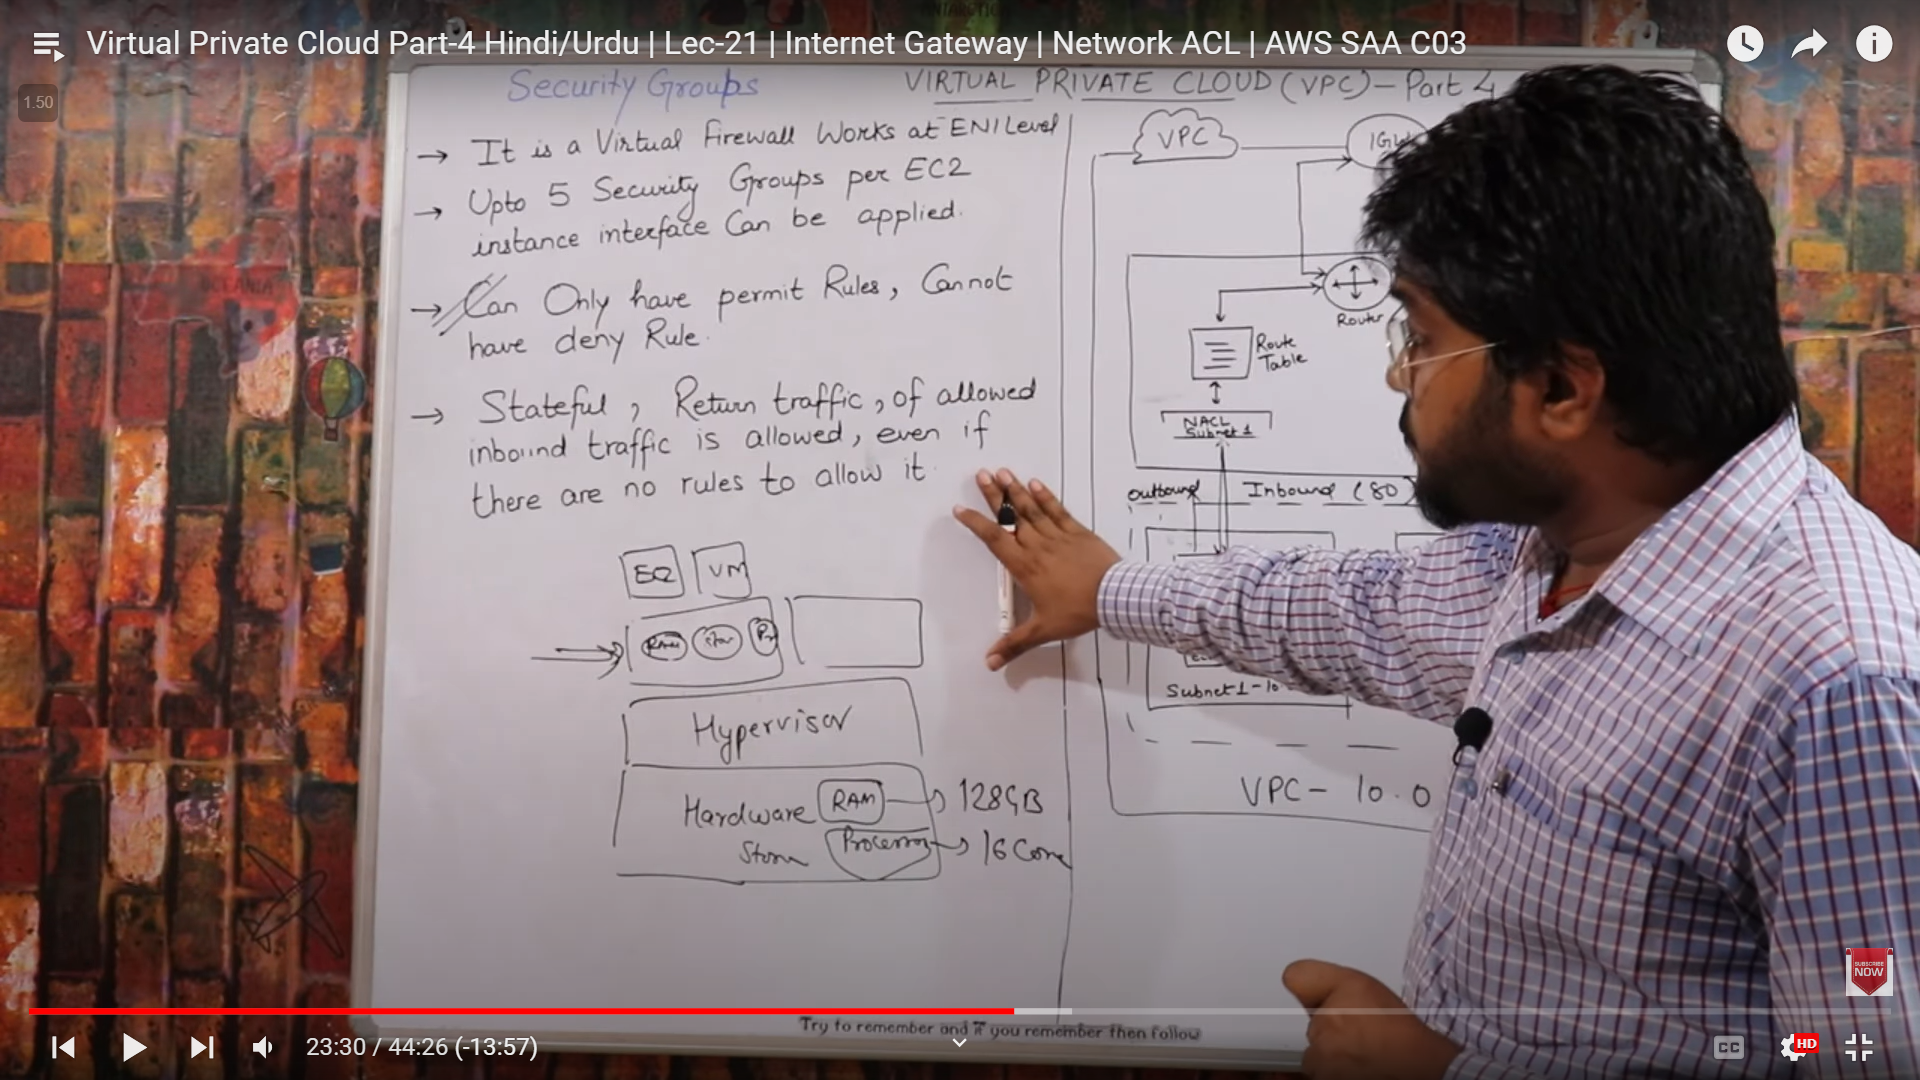 Virtual Private Cloud Part-4 Hindi/Urdu | Lec-21 | Internet Gateway | Network ACL | AWS SAA C03
1.50
Security Groups
→ It is a Virtual Firewall Works at ENI Level
→ Upto 5 Security Groups per EC2
instance interface Can be applied.
→ Can Only have permit Rules, Cannot
have deny Rule.
→ Stateful, Return traffic, of allowed
inbound traffic is allowed, even if
there are no rules to allow it.
EC2 VM
RAM Stor Pr
Hypervisor
Hardware RAM → 128GB
Processor → 16 Core
VIRTUAL PRIVATE CLOUD (VPC) - Part 4
VPC
Router
Route
Table
NACL
Subnet 1
outbound Inbound (80)
Subnet 1 - 10
VPC - 10.0
OCEANIA
Try to remember and if you remember then follow
SUBSCRIBE
NOW
23:30 / 44:26 (-13:57)
CC
HD